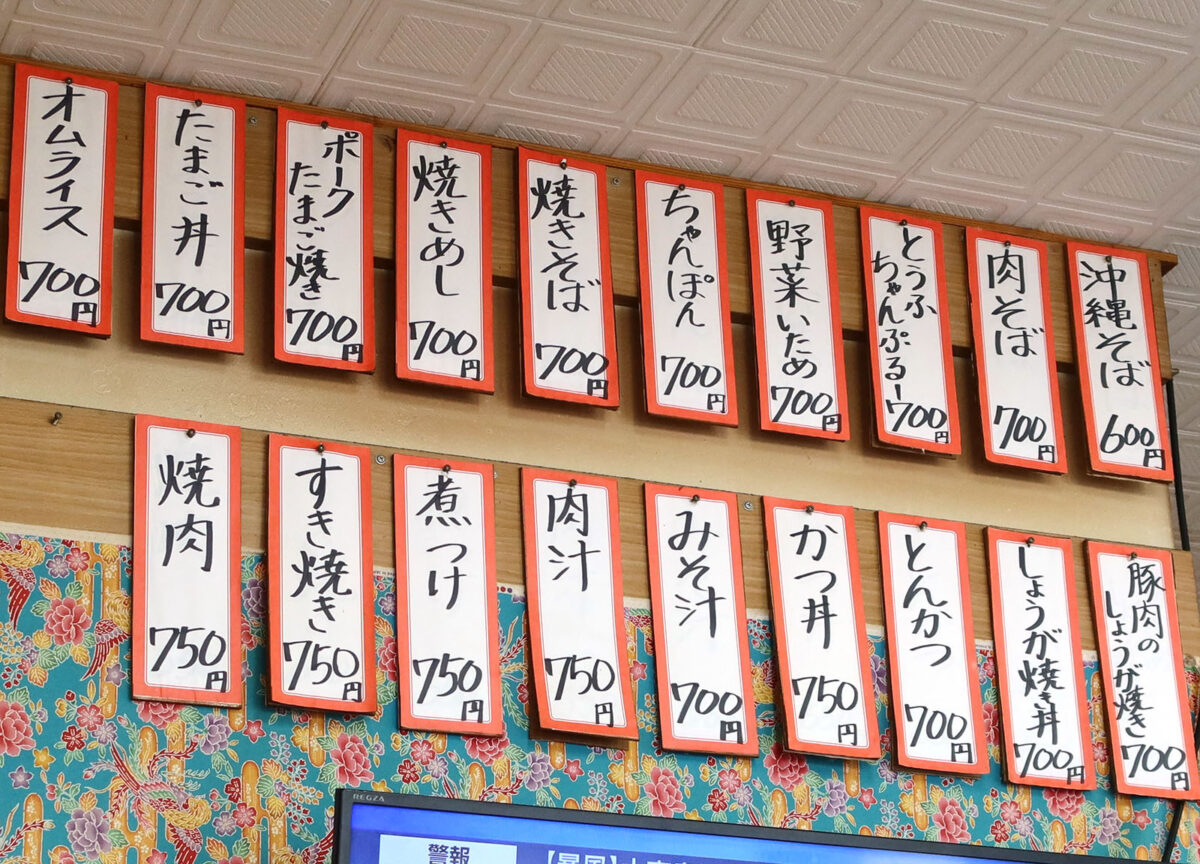 沖縄そば
600円
肉そば
700円
とうふ
ちゃんぷるー
700円
野菜いため
700円
ちゃんぽん
700円
焼きそば
700円
焼きめし
700円
ポーク
たまご焼き
700円
たまご丼
700円
オムライス
700円
豚肉の
しょうが焼き
700円
しょうが焼き丼
700円
とんかつ
700円
かつ丼
750円
みそ汁
700円
肉汁
750円
煮つけ
750円
すき焼き
750円
焼肉
750円
REGZA
警報